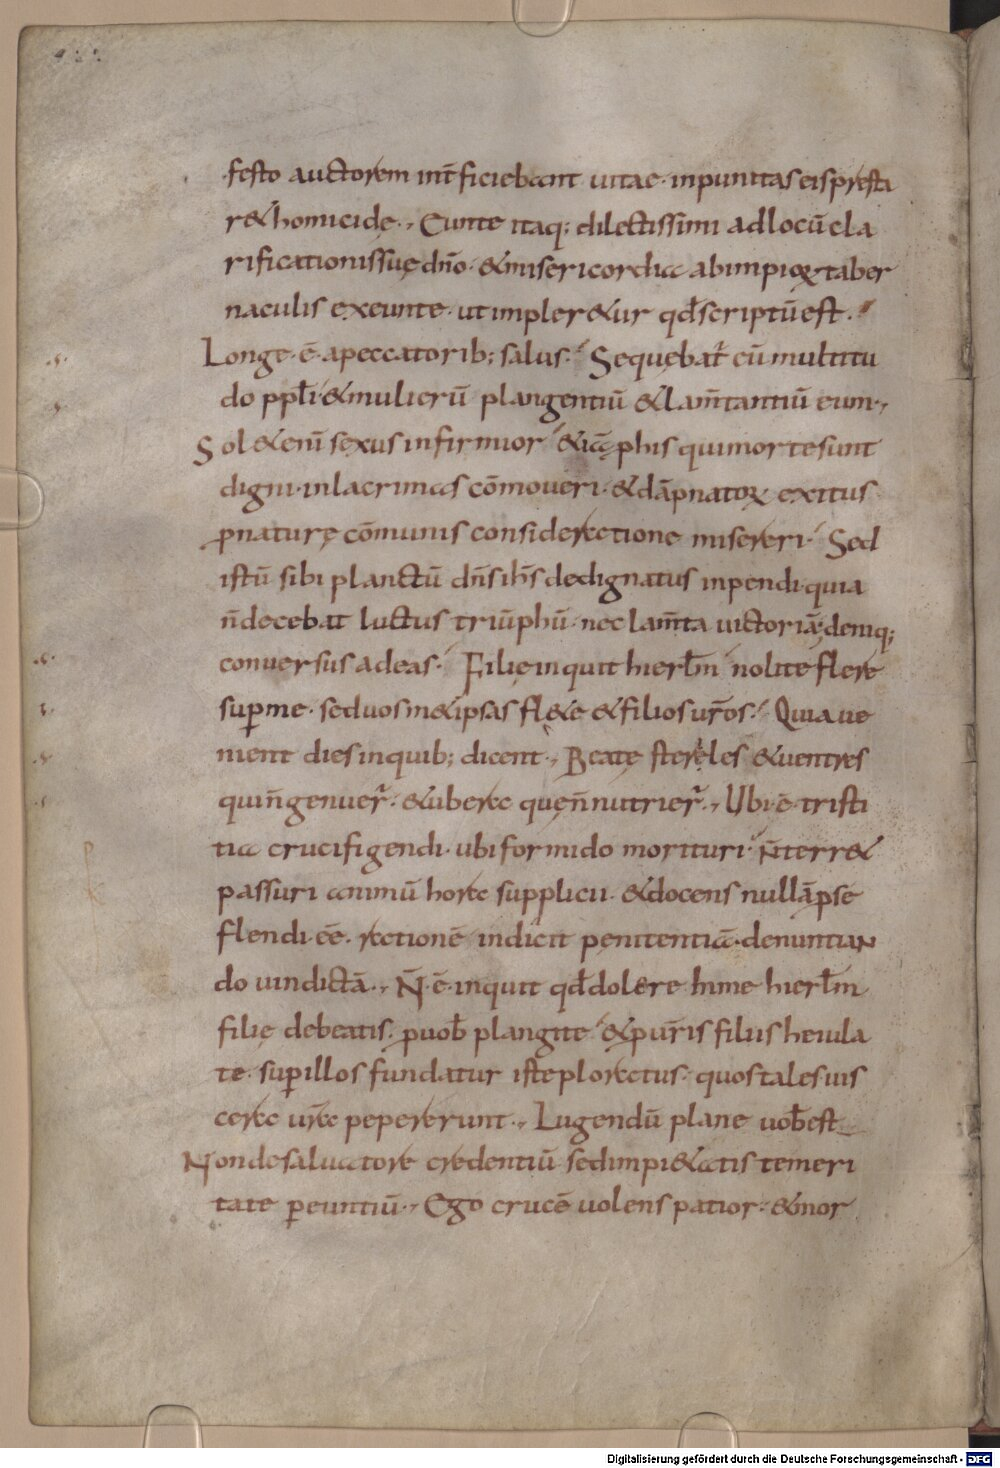 festo auctorem int̄ficiebant uitae · inpunitas eis presta
r&homicide ·, Eunte itaq; dilectissimi ad locū cla
rificationis suę dn̄o · &misericordia ab impioꝝ taber
naculis exeunte · ut impler&ur qđ scriptū est ·
Longe · ē · a peccatorib; salus · Sequebat̄ eū multitu
do ppl̄i · &mulierū plangentiū &lam̄tantiū eum ·,
Sol&enī sexus infirmior &iā ꝑ his qui morte sunt
digni · in lacrimas cōmoueri · &dāpnatoꝝ exitus
ꝓ naturę cōmunis consideratione misereri · Sed
istū sibi planctū dn̄s ih̄s dedignatus inpendi · quia
n̄ decebat luctus triūphū · nec lam̄ta uictoriā; deniq;
conuersus ad eas · Filię inquit hierl̄m nolite flere
sup̄ me · sed uos m&ipsas fl&e &filios ur̄os · Quia ue
nient dies in quib; dicent ·, Beatę steriles &uentres
qui n̄ genuer̄ · &ubera quę n̄ nutrier̄ ·, Ubi · ē · tristi
tia crucifigendi · ubi formido morituri · N̄ terr&
passuri animū hora supplicii · &docens nullā ꝑ se
flendi · eē · rationē indicit penitentiā · denuntian
do uindictā ·, N̄ · ē · inquit qđ dolere in me hierl̄m
filię debeatis · ꝓ uob̄ plangite &ꝓ ur̄is filiis heiula
te · sup̄ illos fundatur iste ploratus · quos tales uis
cera ur̄a pepererunt ·, Lugendū plane uob̄ est
Non de saluatore credentiū sed impi&atis temeri
tate pereuntiū ·, Ego crucē uolens patior · &mor
Digitalisierung gefördert durch die Deutsche Forschungsgemeinschaft - DFG